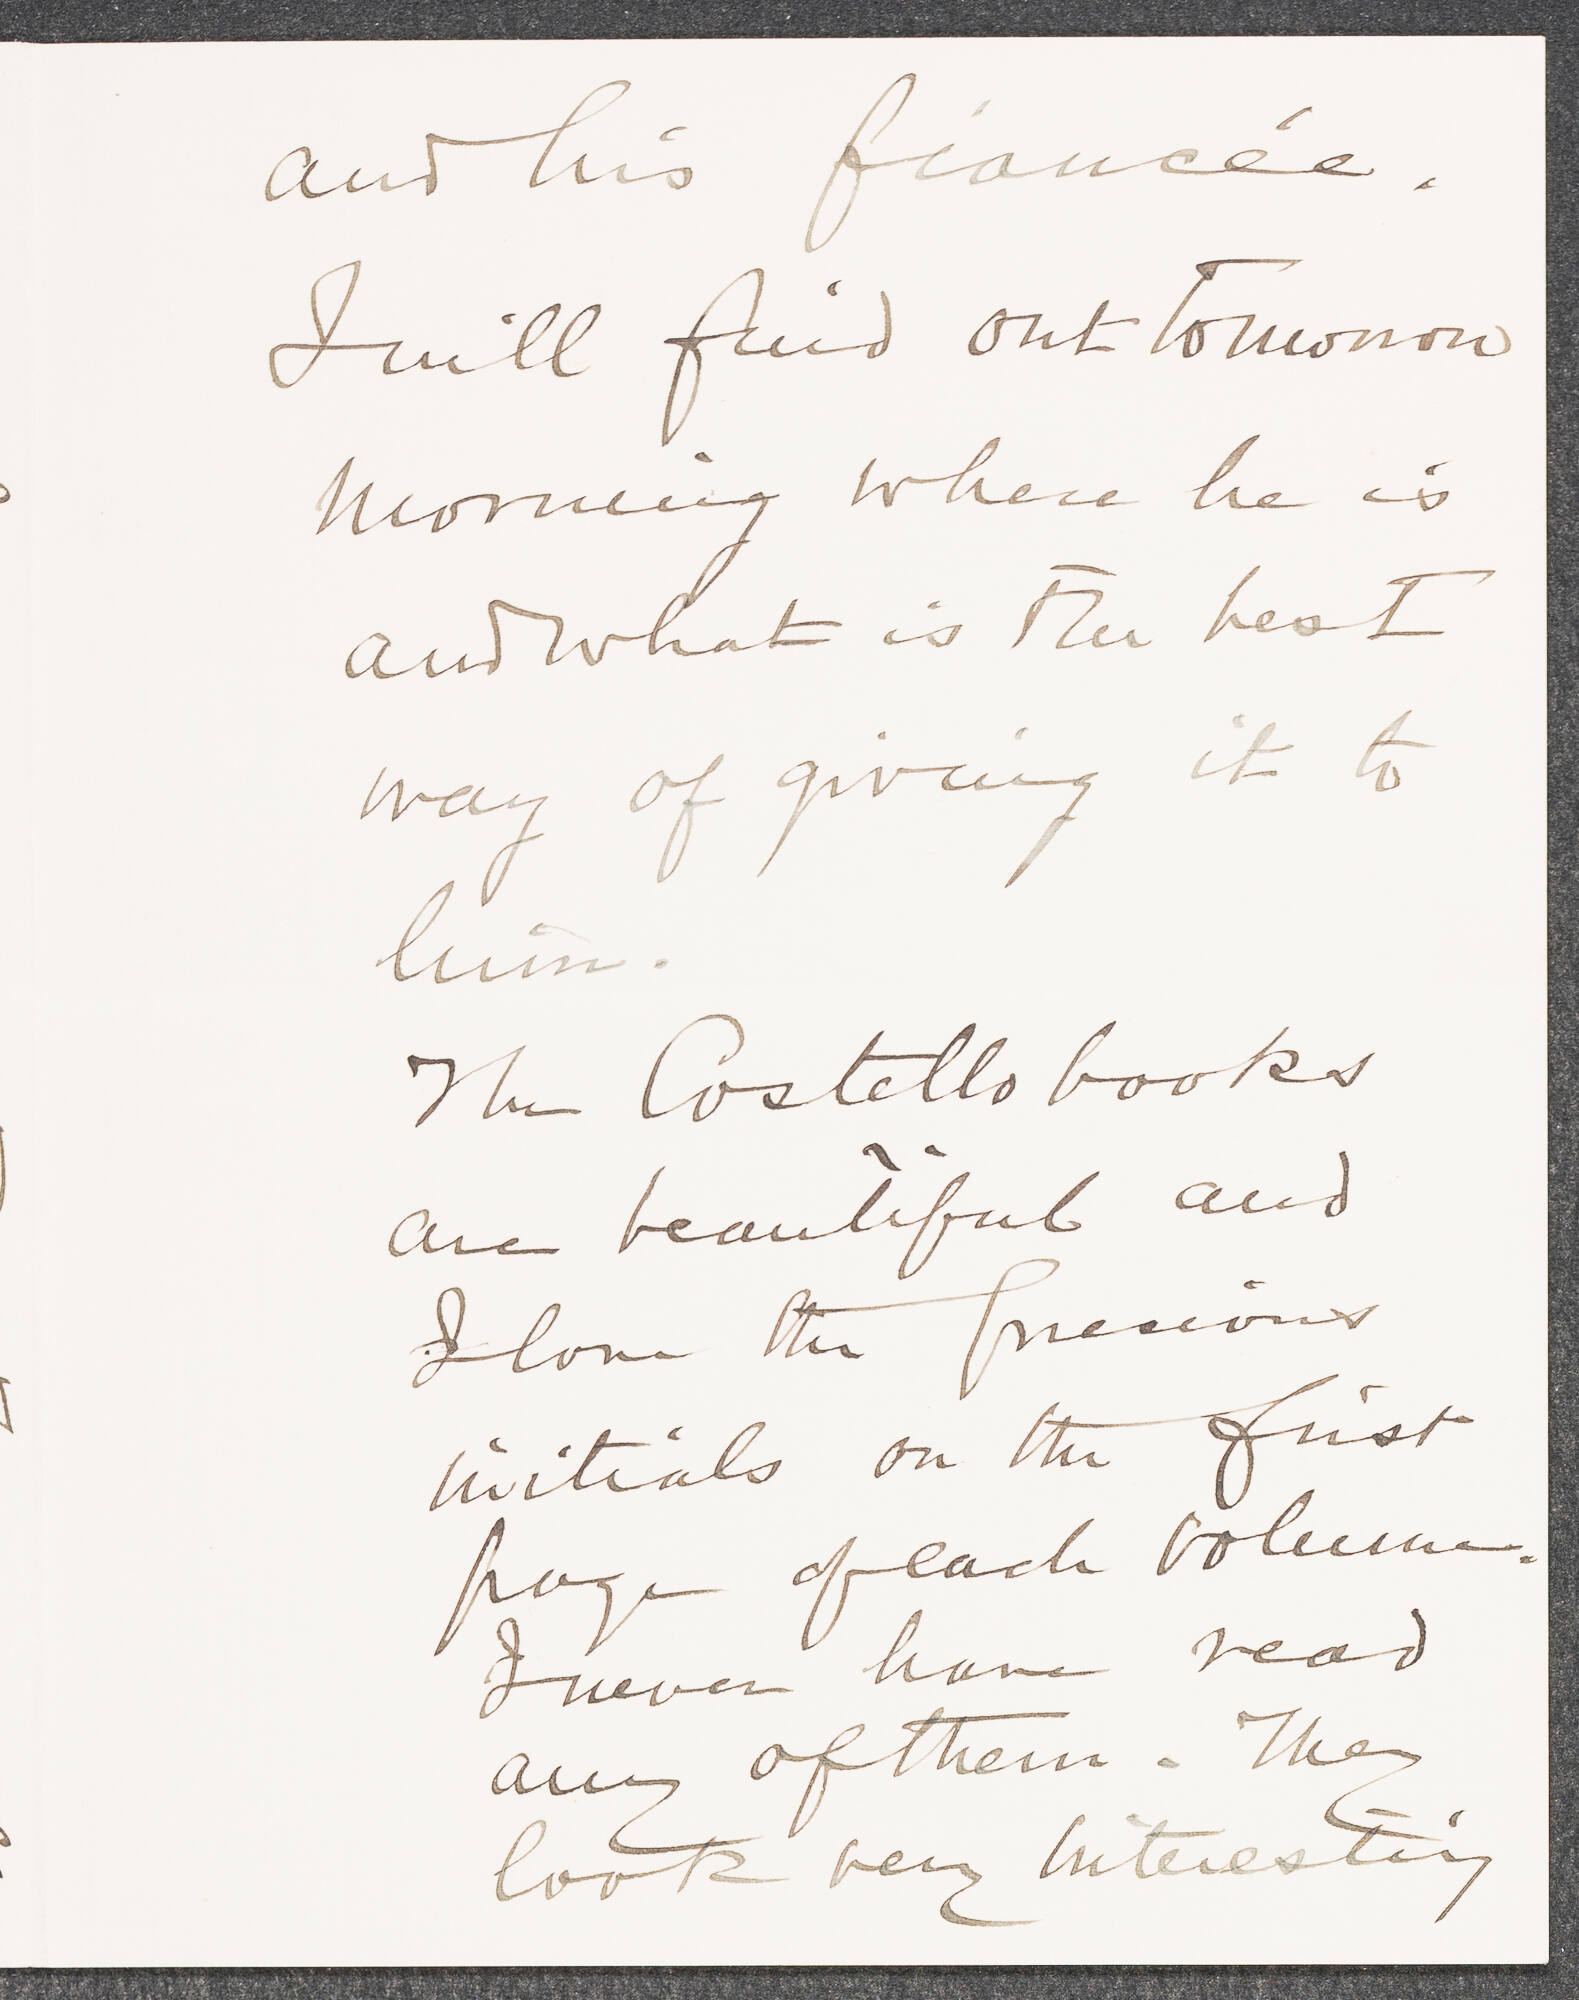 and his fiancée.
I will find out tomorrow
morning where he is
and what is the best
way of giving it to
him.
The Costello books
are beautiful and
I love the precious
initials on the first
page of each volume.
I never have read
any of them. They
look very interesting